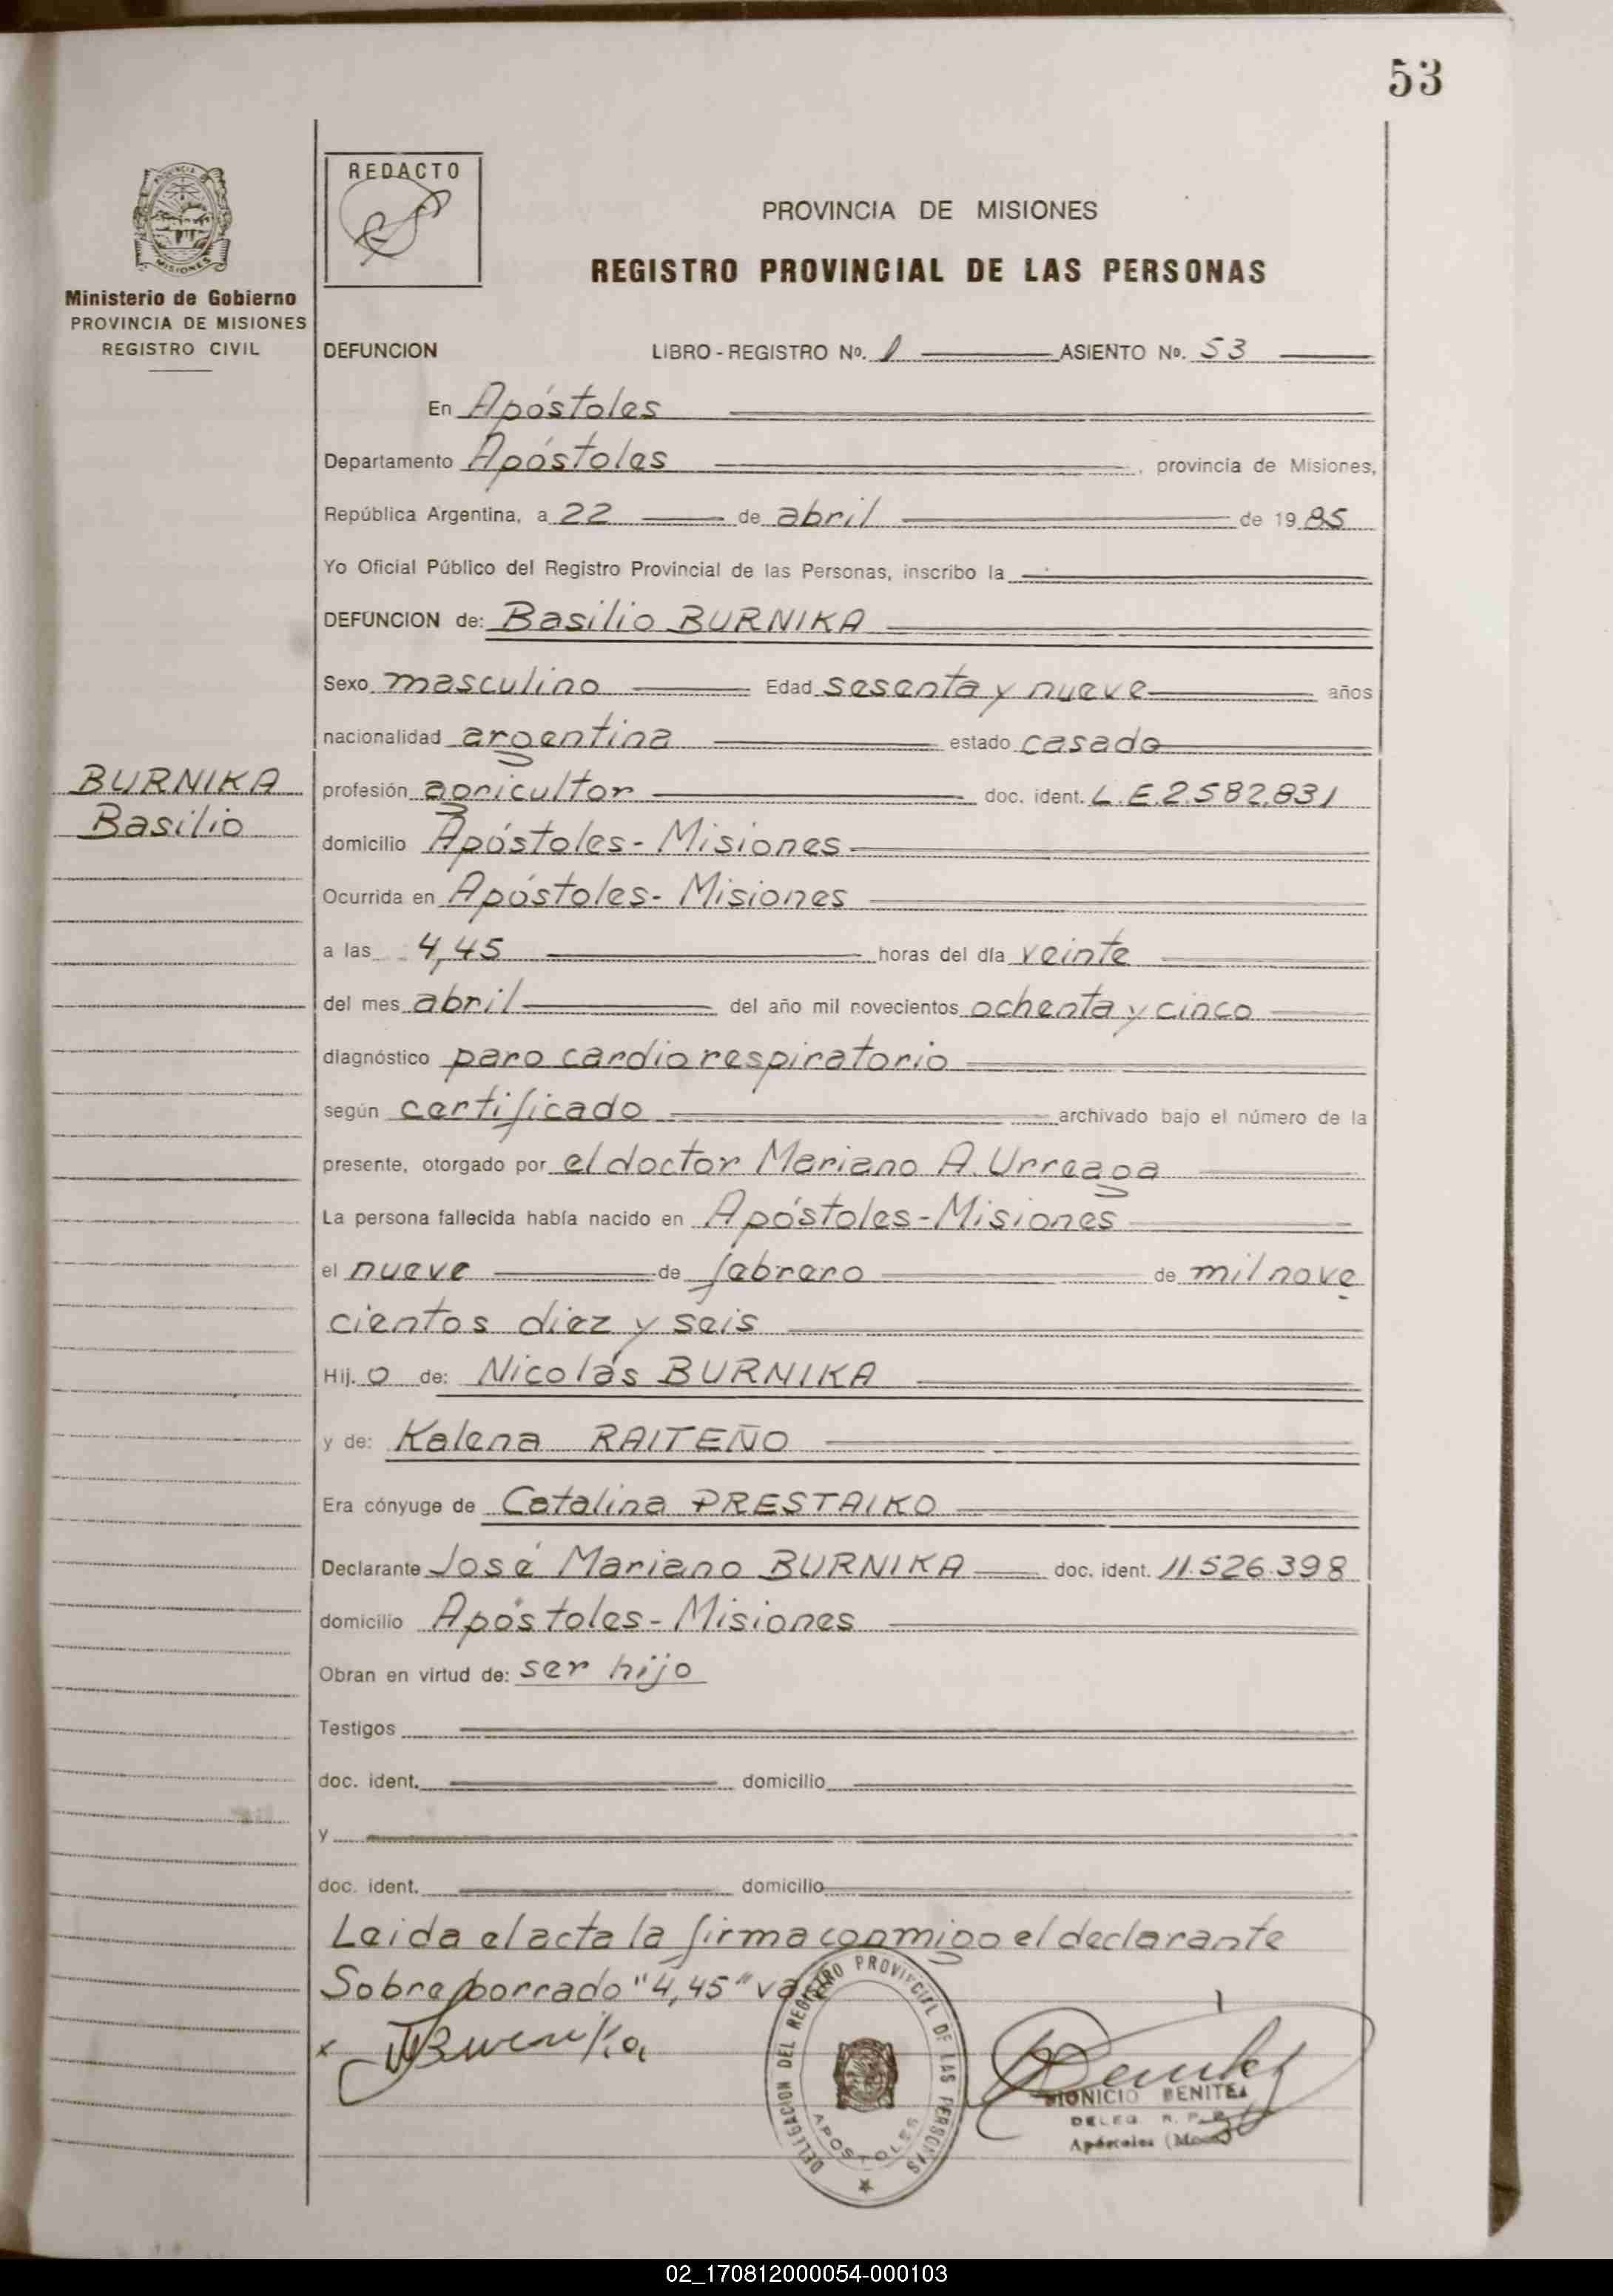 53
REDACTO
PROVINCIA DE MISIONES
REGISTRO PROVINCIAL DE LAS PERSONAS
PROVINCIA
MISIONES
Ministerio de Gobierno
PROVINCIA DE MISIONES
REGISTRO CIVIL
DEFUNCION LIBRO - REGISTRO Nº. 1 ASIENTO Nº. 53
En Apóstoles
Departamento Apóstoles, provincia de Misiones,
República Argentina, a 22 de abril de 1985
Yo Oficial Público del Registro Provincial de las Personas, inscribo la
DEFUNCION de: Basilio BURNIKA
Sexo masculino Edad sesenta y nueve años
nacionalidad argentina estado casado
BURNIKA
Basilio
profesión agricultor doc. ident. L.E.2.582.831
domicilio Apóstoles - Misiones
Ocurrida en Apóstoles - Misiones
a las 4,45 horas del día veinte
del mes abril del año mil novecientos ochenta y cinco
diagnóstico paro cardiorespiratorio
según certificado archivado bajo el número de la
presente, otorgado por el doctor Mariano A. Urreaga
La persona fallecida había nacido en Apóstoles - Misiones
el nueve de febrero de mil nove
cientos diez y seis
Hij. o de: Nicolás BURNIKA
y de: Kalena RAITEÑO
Era cónyuge de Catalina PRESTAIKO
Declarante José Mariano BURNIKA doc. ident. 11.526.398
domicilio Apóstoles - Misiones
Obran en virtud de: ser hijo
Testigos
doc. ident. domicilio
y
doc. ident. domicilio
Leida el acta la firma conmigo el declarante
Sobreborrado "4,45" vale
x JBurnika
DELEGACION DEL REGISTRO PROVINCIAL DE LAS PERSONAS
APOSTOLES
DIONICIO BENITEZ
DELEG. R. P. P.
Apóstoles (Mnes)
02_170812000054-000103